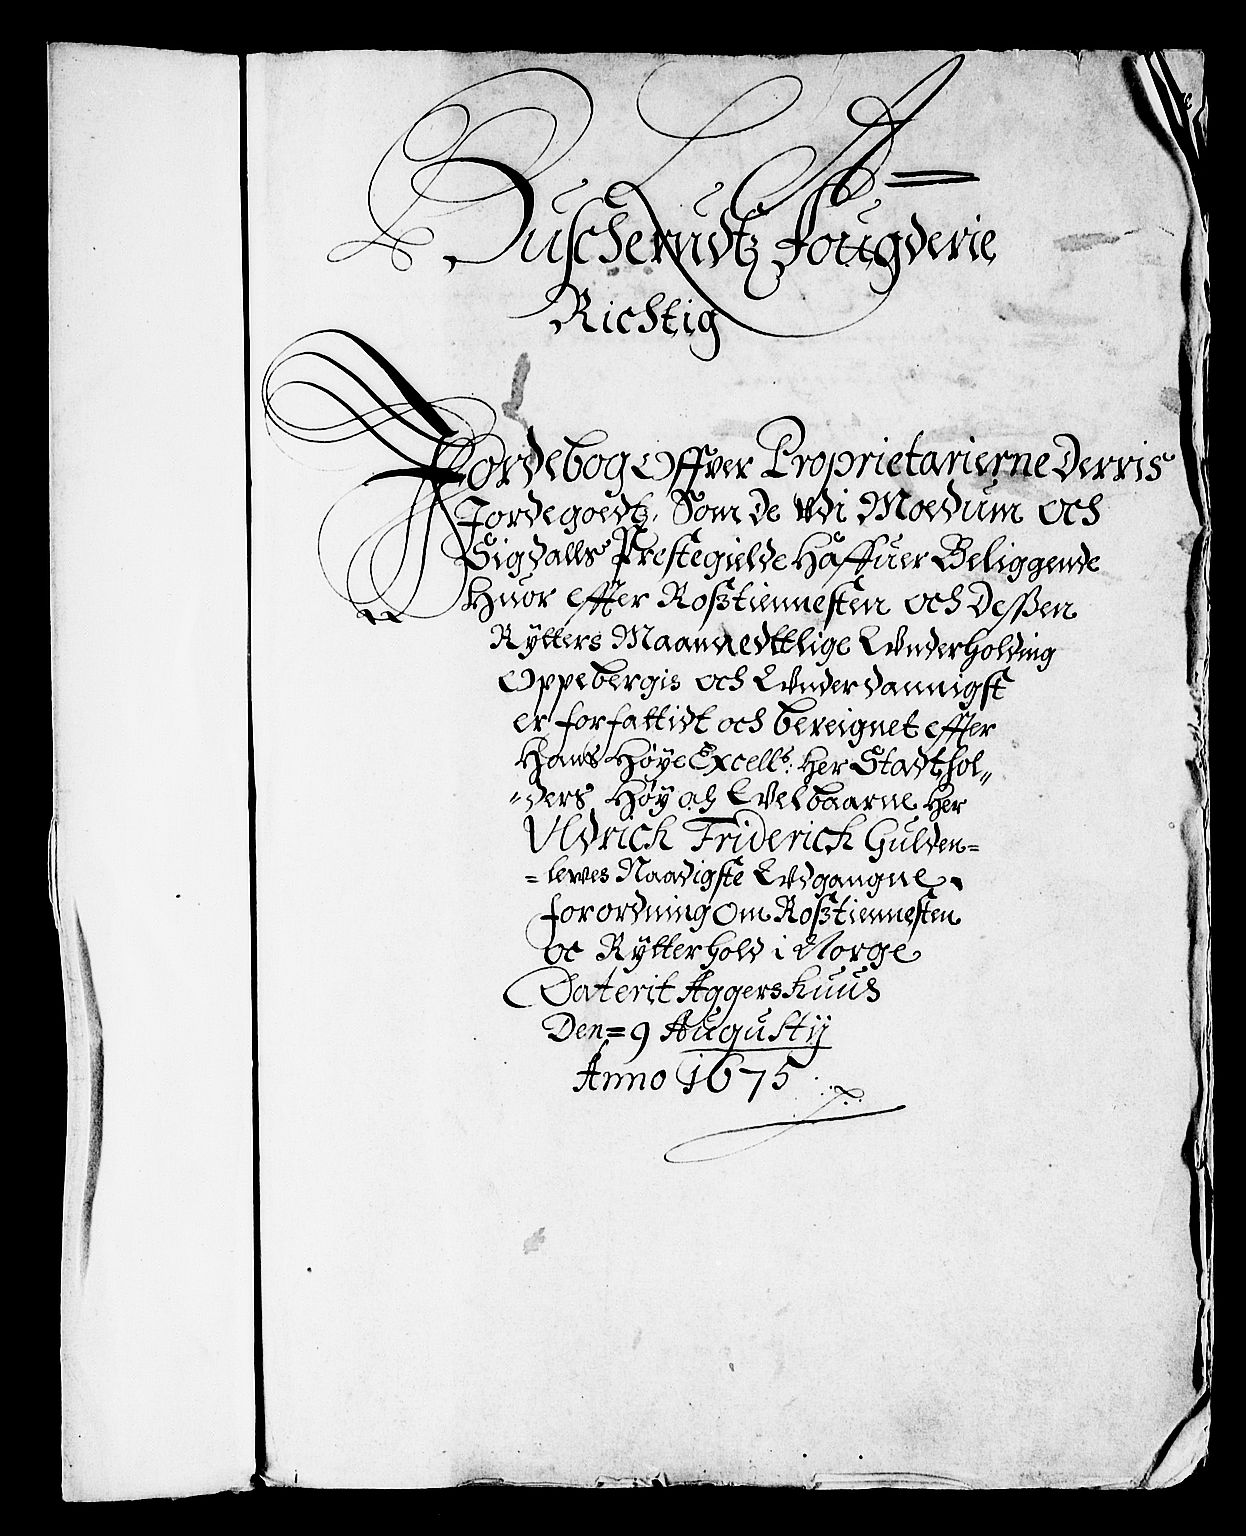 L A
Buscherudtz Fougderie
Richtig
Jordebog Offver Proprietarierne Derris
Jordegoedtz, Som de udi Modum och
Sigdalls Prestegielde Haffuer Beliggende
Huor effter Rosstiennesten och Dessen
Rÿtters Maanedttlige Underholding
Oppebergis och Underdannigst
er forfattidt och bereignet effter
Hans Høye Excells: Her Stadthol„
„ders Høy och Velbaarne Her
Uldrich Friderich Gulden=
=lewes Naadigste Udgangne
forordning om Rosstiennesten
oc Rÿtterhold i Norge
Daterit Aggershuus
Den= 9 Augustÿ
Anno 1675